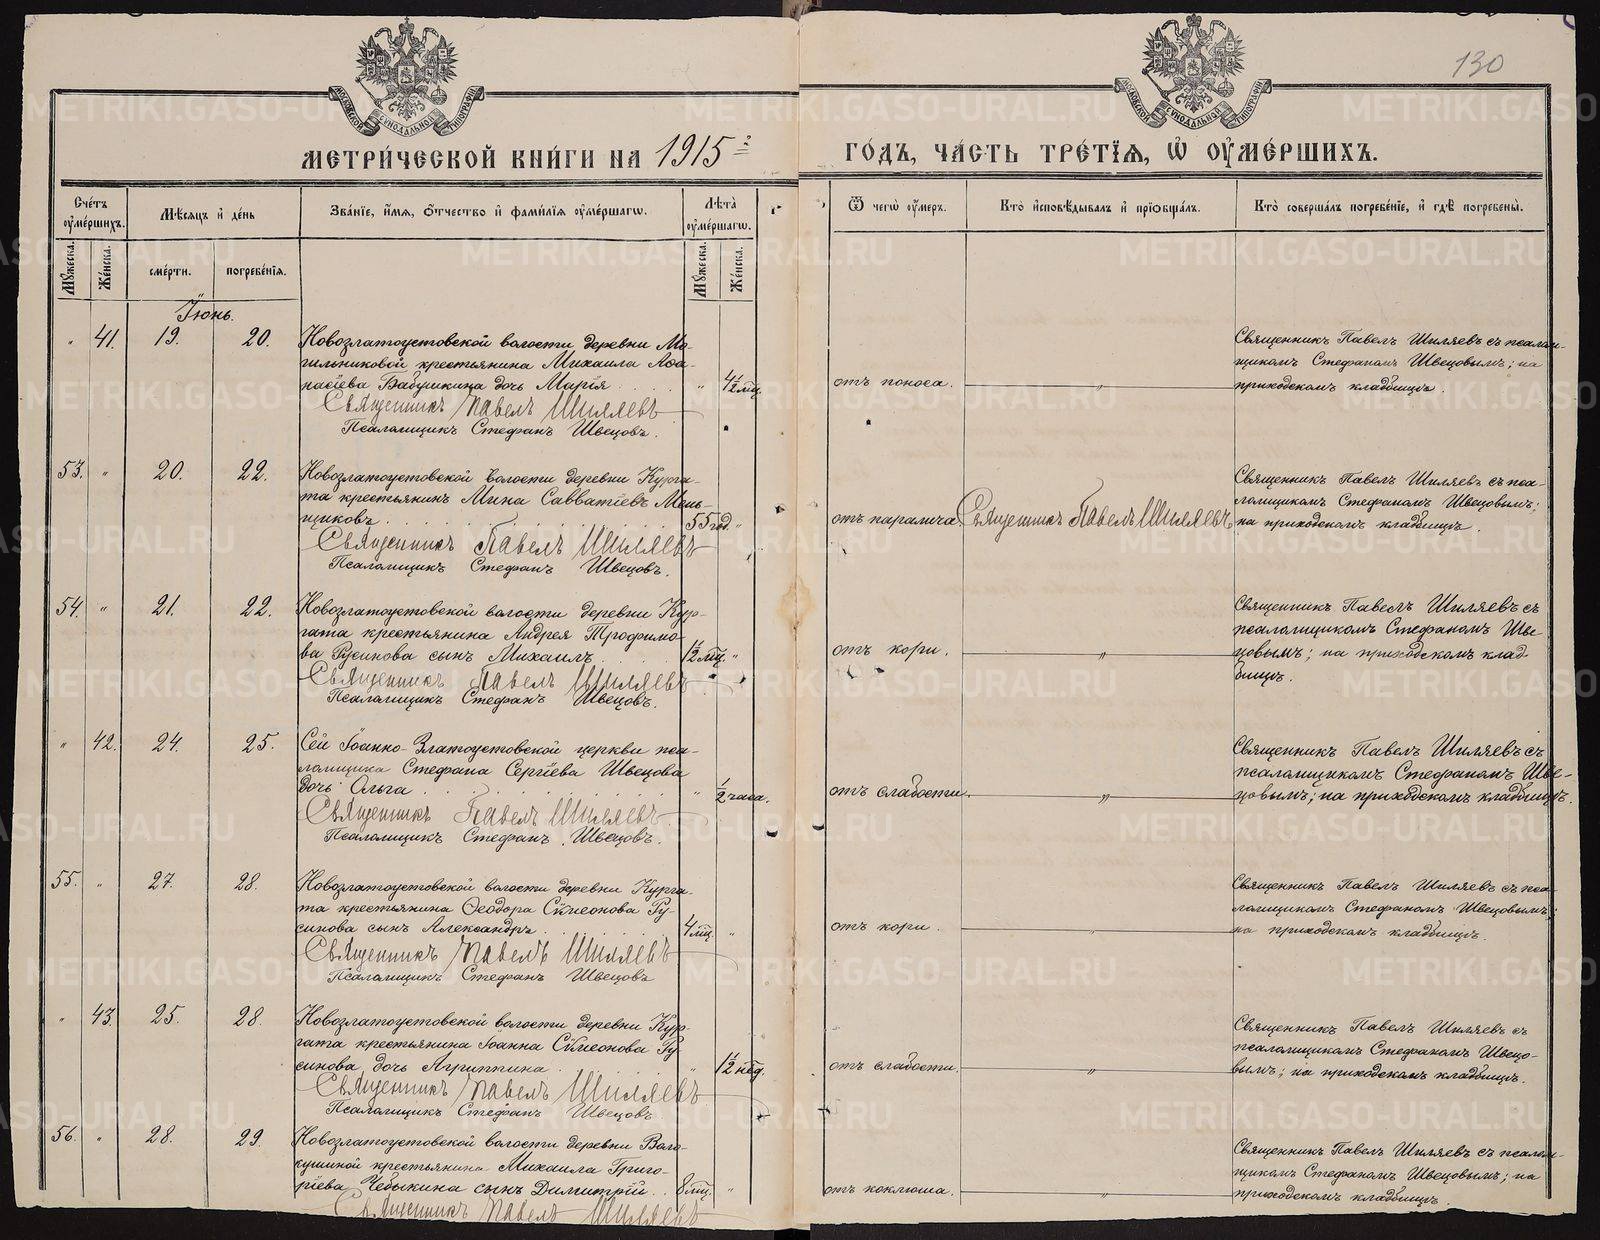 130
МЕТРИ́ЧЕСКОЙ КНИ́ГИ НА 1915 г.
ГО́ДЪ, ЧА́СТЬ ТРЕ́ТІѦ, Ѽ ОУМЕ́РШИХЪ.
Сче́тъ оуме́ршихъ.
Мѣ́сяцъ и де́нь
Зва́нїе, и́мѧ, ѻ́тчество и фами́лїѧ оуме́ршагѡ.
Лѣта̀ оуме́ршагѡ.
Ѿ чегѡ̀ оу́меръ.
Кто̀ и҆сповѣ́дывалъ и҆ прїѡбща́лъ.
Кто̀ соверша́лъ погребе́нїе, и҆ гдѣ̀ погребены̀.
Мꙋжеска.
Же́нска.
сме́рти.
погребе́нїѧ.
Мꙋжеска.
Же́нска.
Іюнь.
" 41. 19. 20. Новозлатоустовской волости деревни Мо-
гильниковой крестьянина Михаила Афа-
насіева Бабушкина дочь Марія . . . . " 4 1/2 мѣс.
Священникъ Павелъ Шиляевъ
Псаломщикъ Стефанъ Швецовъ.
отъ поноса.
"
Священникъ Павелъ Шиляевъ съ псалом-
щикомъ Стефаномъ Швецовымъ; на
приходскомъ кладбищѣ.
53. " 20. 22. Новозлатоустовской волости деревни Курга-
та крестьянинъ Мина Савватіевъ Мень-
щиковъ . . . . 55 год. "
Священникъ Павелъ Шиляевъ
Псаломщикъ Стефанъ Швецовъ.
отъ паралича.
Священникъ Павелъ Шиляевъ
Священникъ Павелъ Шиляевъ съ пса-
ломщикомъ Стефаномъ Швецовымъ;
на приходскомъ кладбищѣ.
54. " 21. 22. Новозлатоустовской волости деревни Кур-
гата крестьянина Андрея Трофимо-
ва Русинова сынъ Михаилъ . . . 1 1/2 мѣс. "
Священникъ Павелъ Шиляевъ
Псаломщикъ Стефанъ Швецовъ.
отъ кори.
"
Священникъ Павелъ Шиляевъ съ
псаломщикомъ Стефаномъ Шве-
цовымъ; на приходскомъ клад-
бищѣ.
" 42. 24. 25. Сей Іоанно-Златоустовской церкви пса-
ломщика Стефана Сергіева Швецова
дочь Ольга . . . . " 1/2 часа.
Священникъ Павелъ Шиляевъ
Псаломщикъ Стефанъ Швецовъ.
отъ слабости.
"
Священникъ Павелъ Шиляевъ съ
псаломщикомъ Стефаномъ Шве-
цовымъ; на приходскомъ кладбищѣ.
55. " 27. 28. Новозлатоустовской волости деревни Курга-
та крестьянина Ѳеодора Симеонова Ру-
синова сынъ Александръ . . . 4 мѣс. "
Священникъ Павелъ Шиляевъ
Псаломщикъ Стефанъ Швецовъ
отъ кори.
"
Священникъ Павелъ Шиляевъ съ пса-
ломщикомъ Стефаномъ Швецовымъ;
на приходскомъ кладбищѣ.
" 43. 25. 28. Новозлатоустовской волости деревни Кур-
гата крестьянина Іоанна Симеонова Ру-
синова дочь Агриппина . . . " 1 1/2 нед.
Священникъ Павелъ Шиляевъ
Псаломщикъ Стефанъ Швецовъ
отъ слабости.
"
Священникъ Павелъ Шиляевъ съ
псаломщикомъ Стефаномъ Швецо-
вымъ; на приходскомъ кладбищѣ.
56. " 28. 29. Новозлатоустовской волости деревни Воло-
кушиной крестьянина Михаила Григо-
ріева Чебыкина сынъ Димитрій . . 8 мѣс. "
Священникъ Павелъ Шиляевъ
отъ коклюша.
"
Священникъ Павелъ Шиляевъ съ псалом-
щикомъ Стефаномъ Швецовымъ; на
приходскомъ кладбищѣ.
METRIKI.GASO-URAL.RU